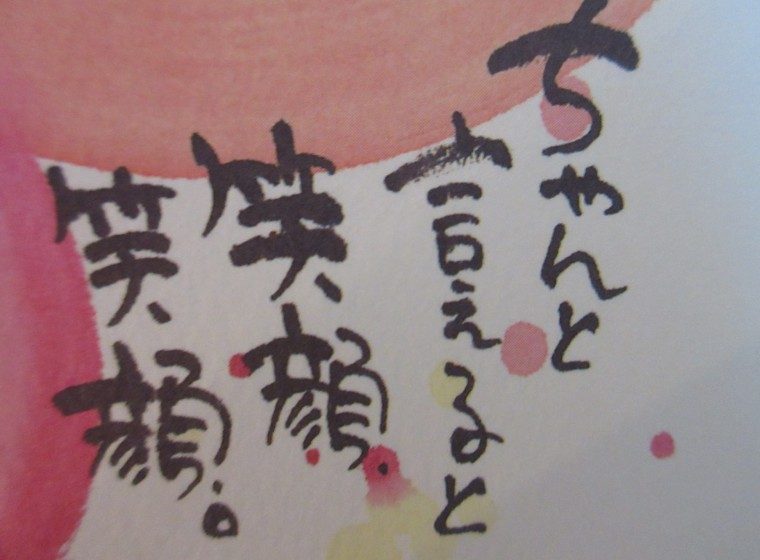 ちゃんと
言えると
笑顔
笑顔。